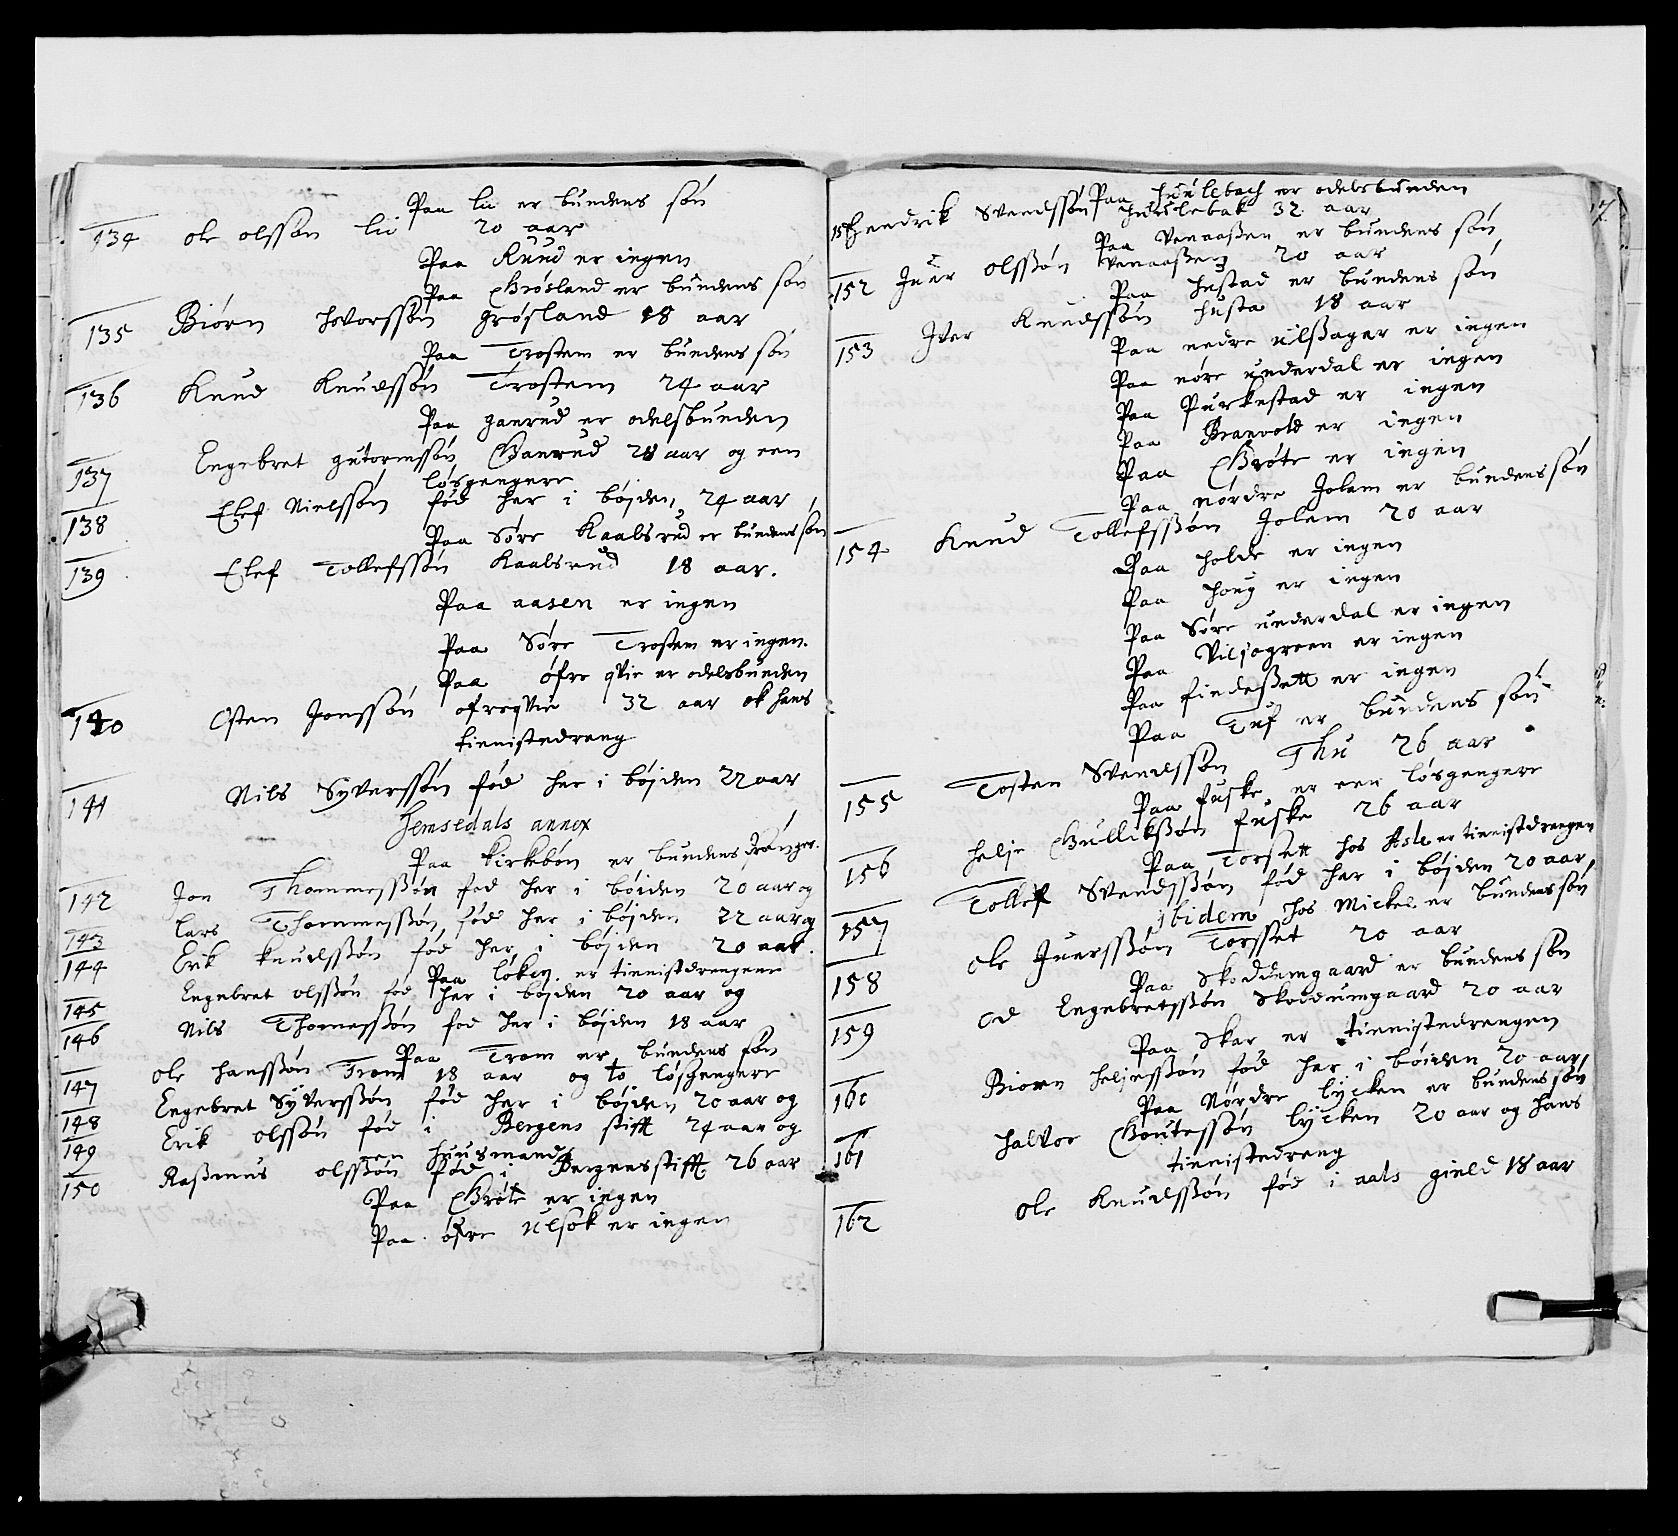 Paa lii er bundens søn
134 ole olssøn lii 20 aar
Paa Ruud er ingen
Paa Grøsland er bundens søn
135 Biørn hovorssøn grøsland 18 aar
Paa Trostem er bundens søn
136 Knud Knudssøn Trostem 24 aar
Paa ganrud er odelsbunden
137 Engebret gutormssøn Ganrud 28 aar og een
løsgengere
138 Elef Nielssøn fød her i bøjden, 24 aar
Paa Søre Kaalsrud er bundens søn
139 Elef Tollefssøn Kaalsrud 18 aar.
Paa aasen er ingen
Paa Søre Trostem er ingen.
Paa øfre qvie er odelsbunden
140 Osten Jonssøn ofreqvie 32 aar ok hans
tienistedreng
141 Nils Syverssøn fød her i bøjden 22 aar
Hemsedals annex
Paa Kirkebøn er bundens drønger.
142 Jon Thommessøn fød her i bøiden 20 aar og
143 lars Thommessøn, fød her i bøjden 22 aar og
144 Erik knudssøn fød her i bøjden 20 aar.
Paa løken er tienistdrengene
145 Engebret olssøn fød her i bøjden 20 aar og
146 Nils Thomessøn fød her i bøjden 18 aar
Paa Trom er bundens søn
147 ole hanssøn Trom 18 aar og to løsgengere
148 Engebret Syverssøn fød her i bøjden 20 aar og
149 Erik olssøn fød i Bergens stifft 24 aar og
een huusmand
150 Rasmus olssøn fød i Bergensstifft 26 aar
Paa Grøte er ingen
Paa øfre Ulsok er ingen
Paa huulebach er odelsbunden
151 Hendrik Svendssøn huulebak 32 aar
Paa Venaassen er bundens søn
152 Juer olssøn Venaassen 20 aar
Paa hustad er bundens søn
153 Iver Knudssøn husta 18 aar
Paa nedre Ulssager er ingen
Paa nøre underdal er ingen
Paa Purkestad er ingen
Paa Branvold er ingen
Paa Grøte er ingen
Paa nordre Jolem er bundens søn
154 Knud Tollefssøn Jolem 20 aar
Paa holde er ingen
Paa houg er ingen
Paa Søre underdal er ingen
Paa Viljogreen er ingen
Paa findesett er ingen
Paa Tuf er bundens søn
155 Tosten Svendssøn Thu 26 aar
Paa fuske er een løsgengere
156 helje Gullikssøn fuske 26 aar
Paa Torsett hos Asle er tienistdrengen
157 Tollef Svendssøn fød her i bøjden 20 aar,
ibidem hos Mickel er bundens søn
158 ole Juerssøn Torsset 20 aar
Paa Skoddumgaard er bundens søn
159 od Engebretssøn Skoddumgaard 20 aar
Paa Skar er tienistedrengen
160 Biorn heljessøn fød her i bøiden 20 aar,
Paa Nørdre lycken er bundens søn
161 halvor Goutessøn lycken 20 aar og hans
tienistedreng
162 ole Knudssøn fød i aals gield 18 aar